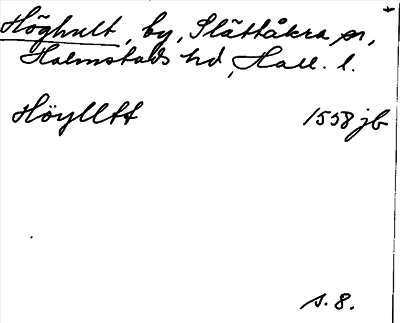 Höghult, by, Slättåkra sn,
Halmstads hd, Hall. l.
Höylltt 1558 jb
s. 8.